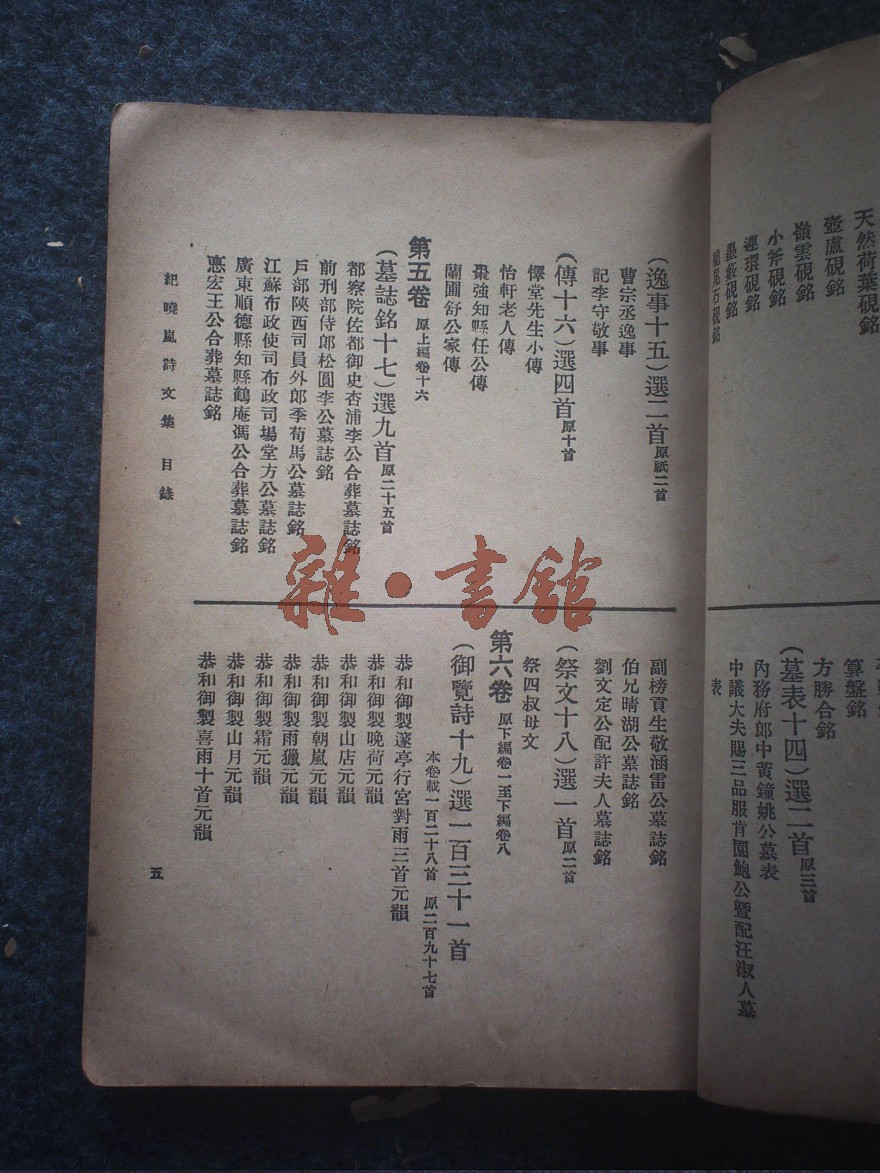 天然荷葉硯銘
壺盧硯銘
嶺雲硯銘
小斧硯銘
連環硯銘
墨藪硯銘
算盤銘
方勝合銘
(墓表十四)選二首原三首
內務府郎中黃鐘姚公墓表
中議大夫賜三品服肯園鮑公暨配汪淑人墓
表
(逸事十五)選二首原祇二首
曹宗丞逸事
記李守敬事
(傳十六)選四首原十首
懌堂先生小傳
怡軒老人傳
棗強知縣任公傳
蘭圃舒公家傳
第五卷 原上編卷十六
(墓誌銘十七)選九首原二十五首
都察院佐都御史杏浦李公合葬墓誌銘
前刑部侍郎松園李公墓誌銘
戶部陝西司員外郎季荀馬公墓誌銘
江蘇布政使司布政司場堂方公墓誌銘
廣東順德縣知縣鶴庵馮公合葬墓誌銘
悳宏王公合葬墓誌銘
副榜貢生敬涵雷公墓誌銘
伯兄晴湖公墓誌銘
劉文定公配許夫人墓誌銘
(祭文十八)選一首原二首
祭四叔母文
第六卷 原下編卷一至下編卷八
(御覽詩十九)選一百三十一首
本卷載一百二十八首 原二百九十七首
恭和御製邃亭行宮對雨三首元韻
恭和御製晚荷元韻
恭和御製山店元韻
恭和御製朝嵐元韻
恭和御製雨獵元韻
恭和御製霜元韻
恭和御製山月元韻
恭和御製喜雨十首元韻
紀曉嵐詩文集 目錄
五
雜·書館